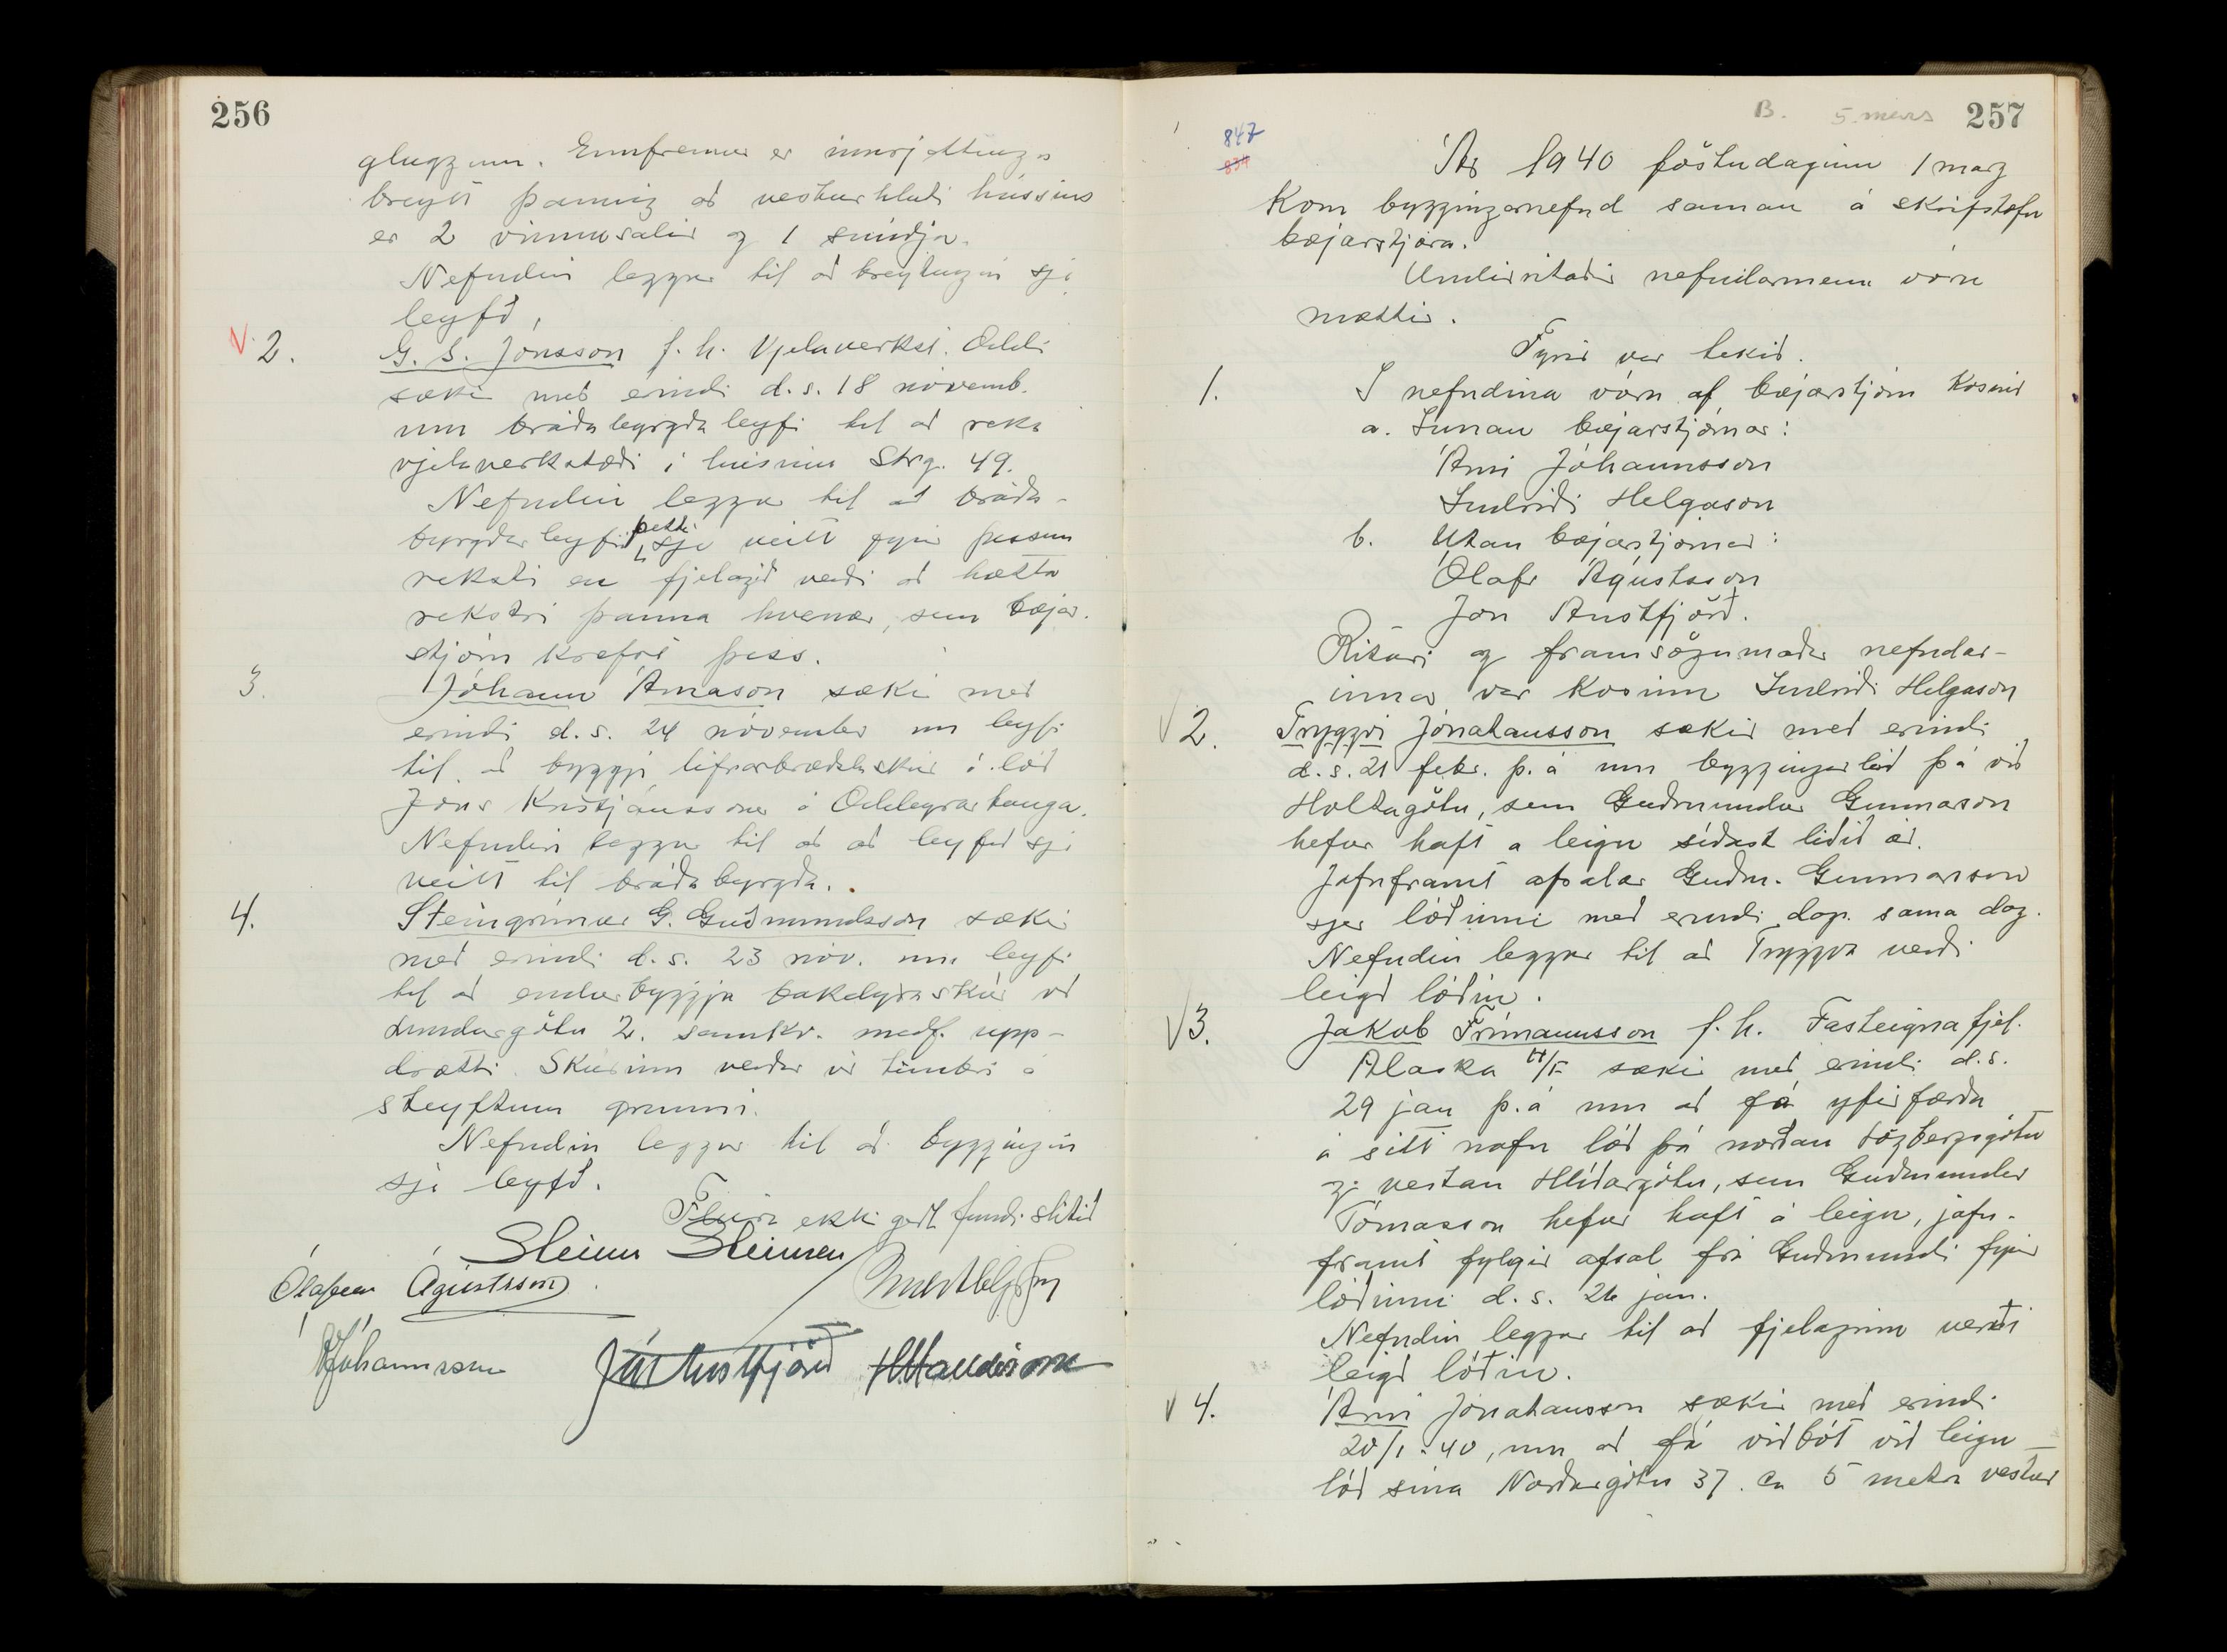 256
gluggum. Ennfremur er innrjettinga
breytt þannig að vesturhluti hússins
er 2 vinnusalir og 1 smiðja.
Nefndin leggur til að breytingin sje
leyfð.
V. 2. G. S. Jónsson f. h. Vjelaverkst. Oddi
sækir með erindi d.s. 18 novemb.
um bráðabyrgðaleyfi til að reka
vjelaverkstæði i húsinu Strg. 49.
Nefndin leggur til að bráða-
byrgðarleyfið þetta sje veitt fyrir þessum
rekstri en fjelagið verði að hætta
rekstri þarna hvenær, sem bæjar-
stjórn krefst þess.
3. Jóhann Árnason sækir með
erindi d.s. 24 nóvember um leyfi
til að byggja lifrarbræðsluskúr á lóð
Jóns Kristjánssonar á Oddeyrartanga.
Nefndin leggur til að að leyfið sje
veitt til bráðabyrgða.
4. Steingrímur G. Guðmundsson sækir
með erindi d.s. 23 nóv. um leyfi
til að endurbyggja bakdyraskúr við
Lundargötu 2. samkv. medf. upp-
drætti. Skúrinn verður úr timbri á
steyftum grunni.
Nefndin leggur til að byggingin
sje leyfð.
Fleira ekki gert fundi slitið
Steinn Steinsen
Ólafur Ágústsson
Jóhannsson Jón Austfjörð H. Halldórsson
B. 5. mars 257
847
834
Ár 1940 föstudaginn 1 marz
kom byggingarnefnd saman á skrifstofu
bæjarstjóra.
Undirritaðir nefndarmenn voru
mættir.
Fyrir var tekið.
1. Í nefndina vóru af bæjarstjórn kosnir
a. Innan bæjarstjórnar:
Árni Jóhannsson
Indriði Helgason
b. Utan bæjarstjórnar:
Ólafr Ágústsson
Jón Austfjörð.
Ritari og framsögumaður nefndar-
innar var kosinn Indriði Helgason
V 2. Tryggvi Jónatansson sækir með erindi
d.s. 21 febr. þ.á um byggingarlóð þá við
Holtagötu, sem Guðmundur Gunnarson
hefur haft a leigu síðast liðið ár.
Jafnframt afsalar Guðm. Gunnarsson
sjer lóðinni með erindi dag. sama dag.
Nefndin leggur til að Tryggva verði
leigð lóðin.
V 3. Jakob Frímannsson f. h. Fasteignafjel.
Alaska H/F sækir með erindi d.s.
29 jan þ.á um að fá yfirfærða
á sitt nafn lóð þá norðan Lögbergsgötu
og vestan Hlíðargötu, sem Guðmundur
Tómasson hefur haft á leigu, jafn-
framt fylgir afsal frá Guðmundi fyrir
lóðinni d.s. 26 jan.
Nefndin leggur til að fjelaginu verði
leigð lóðin.
V 4. Árni Jónatansson sækir með erindi
20/1-40, um að fá viðbót við leigu-
lóð sína Norðurgötu 37. ca 5 metra vestur